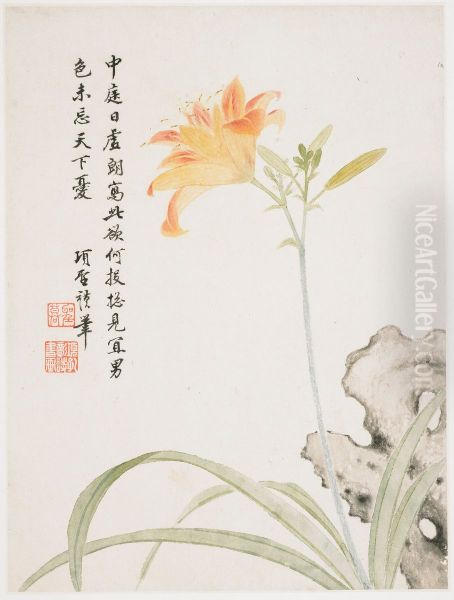 中庭日虛朗寫此欲何投揔見宜男
色未忘天下憂
項聖謨筆
NiceArtGallery.com